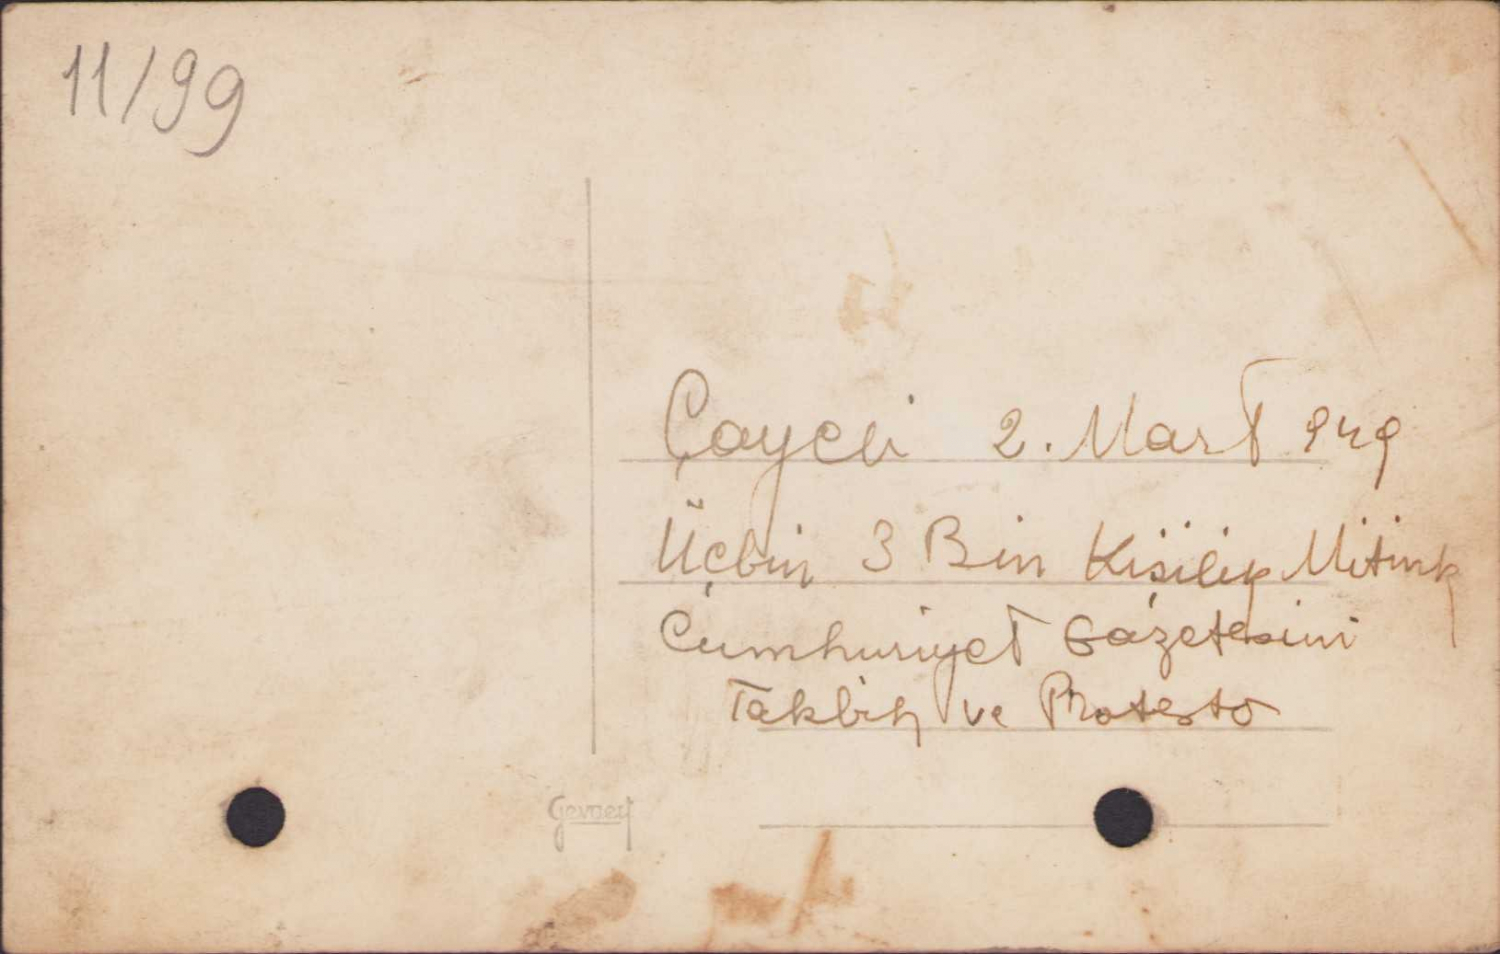 11/99
Çayeli 2. Mart 949
Üçbin 3 Bin Kişilik Mitink
Cumhuriyet Gazetesini
Takbih ve Protesto
Gevaert